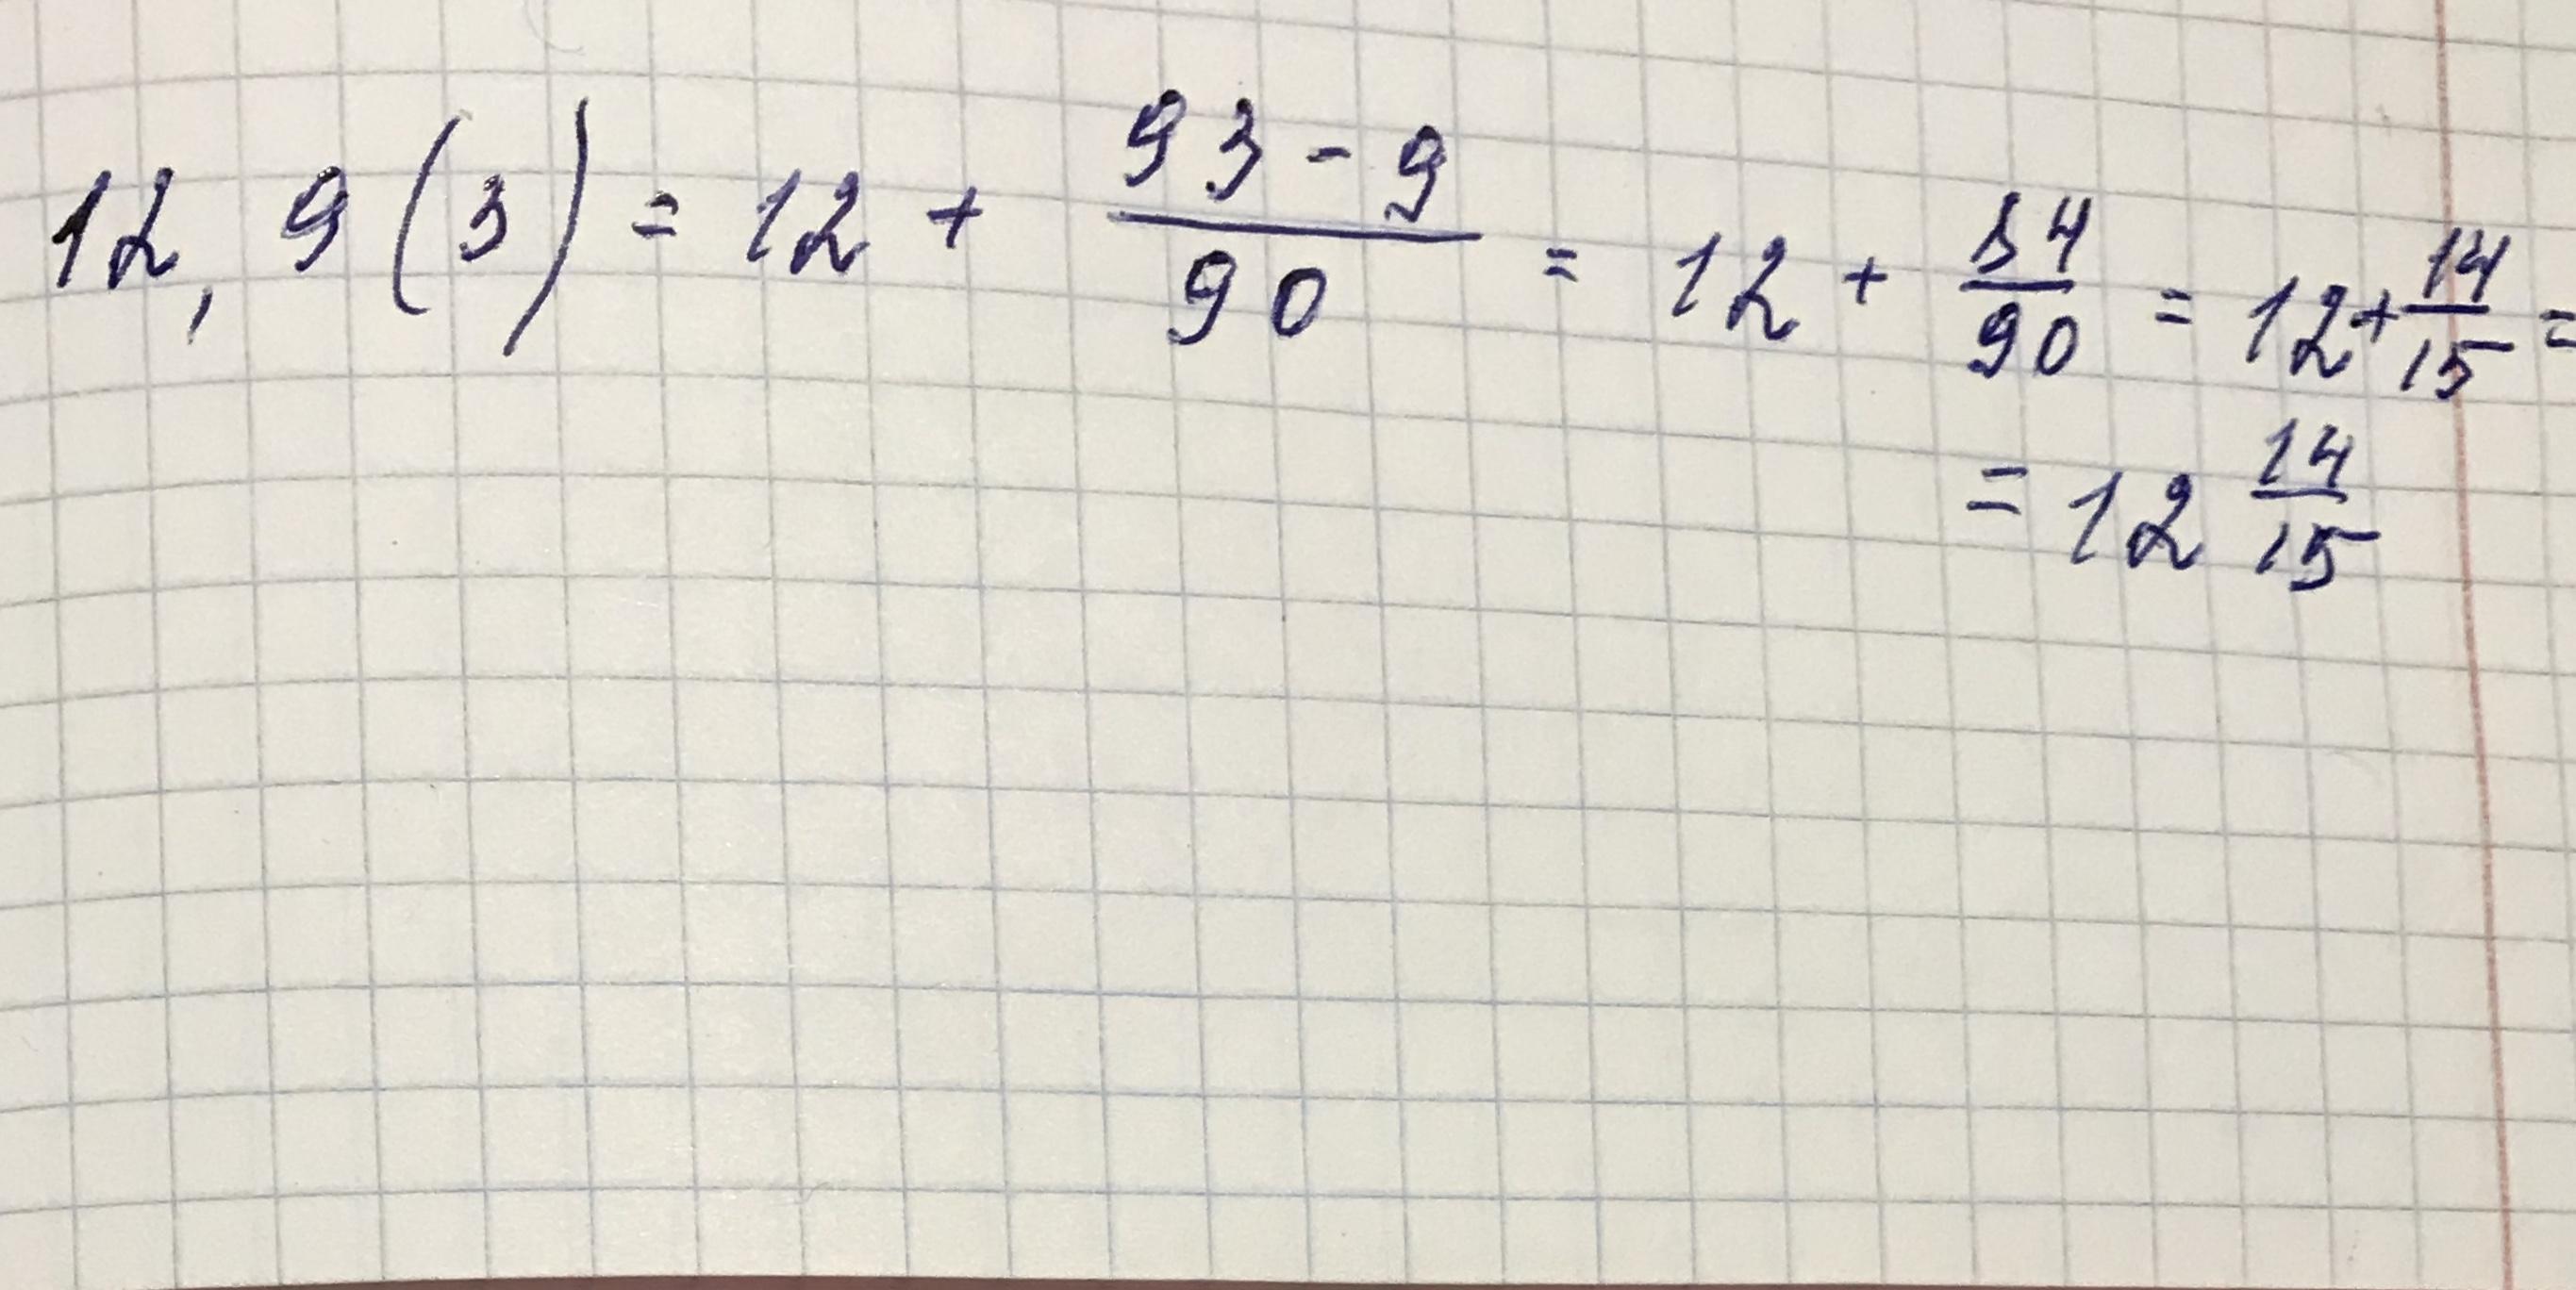 12,9(3) = 12 + \frac{93-9}{90} = 12 + \frac{84}{90} = 12 + \frac{14}{15} =
= 12 \frac{14}{15}